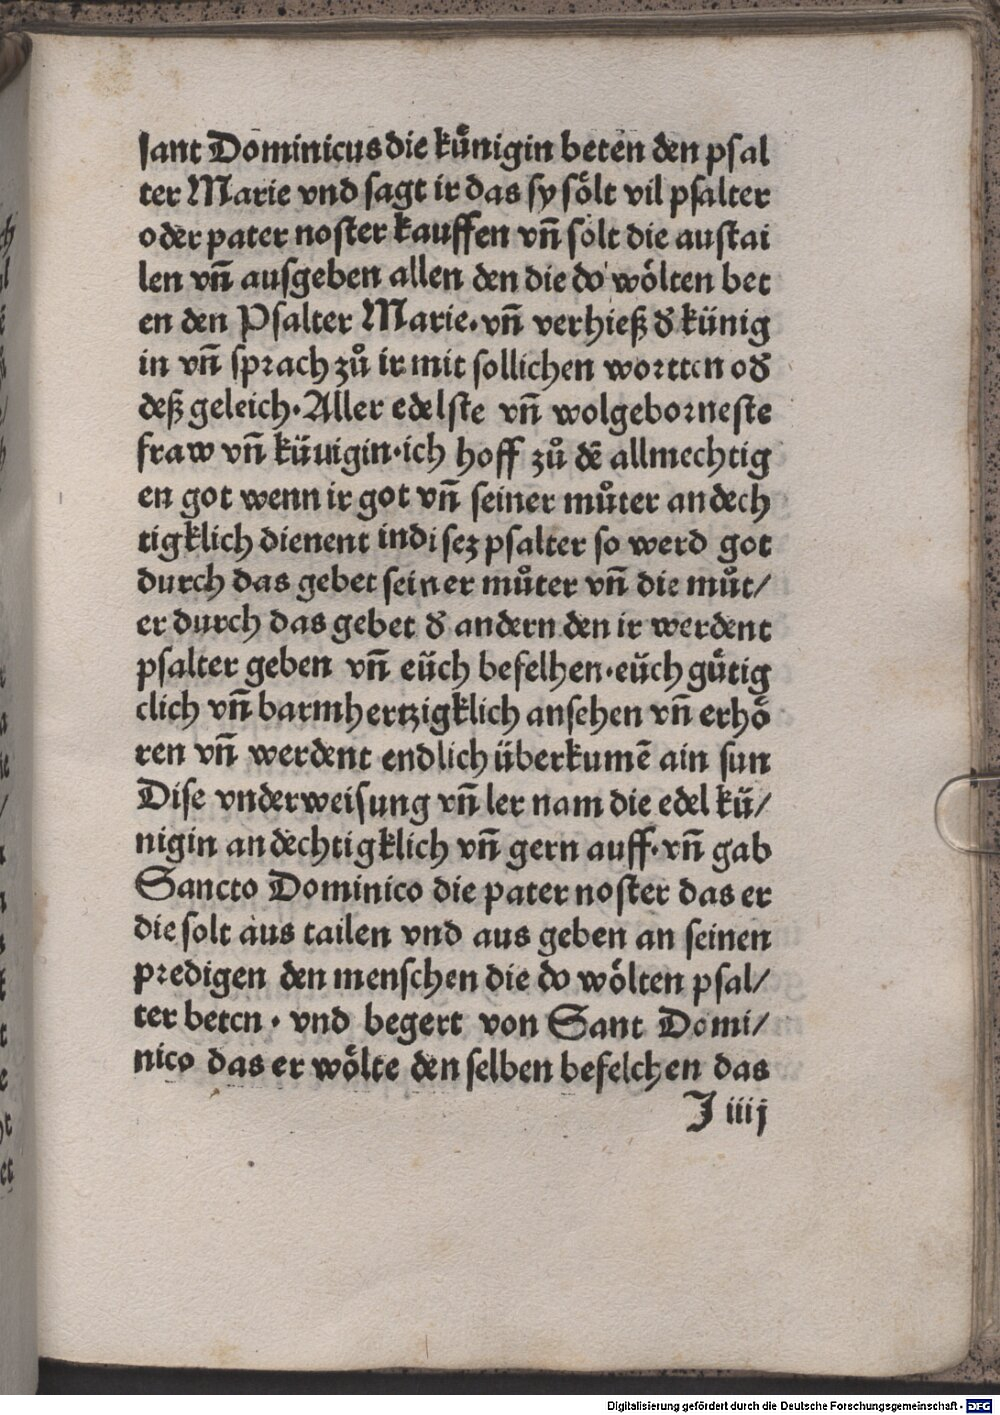 sant Dominicus die kuͤnigin beten den psal
ter Marie vnd sagt ir das sy soͤlt vil psalter
oder pater noster kauffen vñ solt die austai
len vñ ausgeben allen den die do woͤlten bet
en den Psalter Marie. vñ verhieß đ künig
in vñ sprach zuͦ ir mit sollichen wortten ođ
deß geleich. Aller edelste vñ wolgeborneste
fraw vñ küuigin. ich hoff zuͦ dē allmechtig
en got wenn ir got vñ seiner muͦter andech
tigklich dienent in disez psalter so werd got
durch das gebet seiner muͦter vñ die muͦt/
er durch das gebet đ andern den ir werdent
psalter geben vñ eüch befelhen. eüch guͤtig
clich vñ barmhertzigklich ansehen vñ erhoͤ
ren vñ werdent endlich überkumē ain sun
Dise vnderweisung vñ ler nam die edel kü/
nigin andechtigklich vñ gern auff. vñ gab
Sancto Dominico die pater noster das er
die solt aus tailen vnd aus geben an seinen
predigen den menschen die do woͤlten psal/
ter beten. vnd begert von Sant Domi/
nico das er woͤlte den selben befelchen das
J iiij
Digitalisierung gefördert durch die Deutsche Forschungsgemeinschaft - DFG